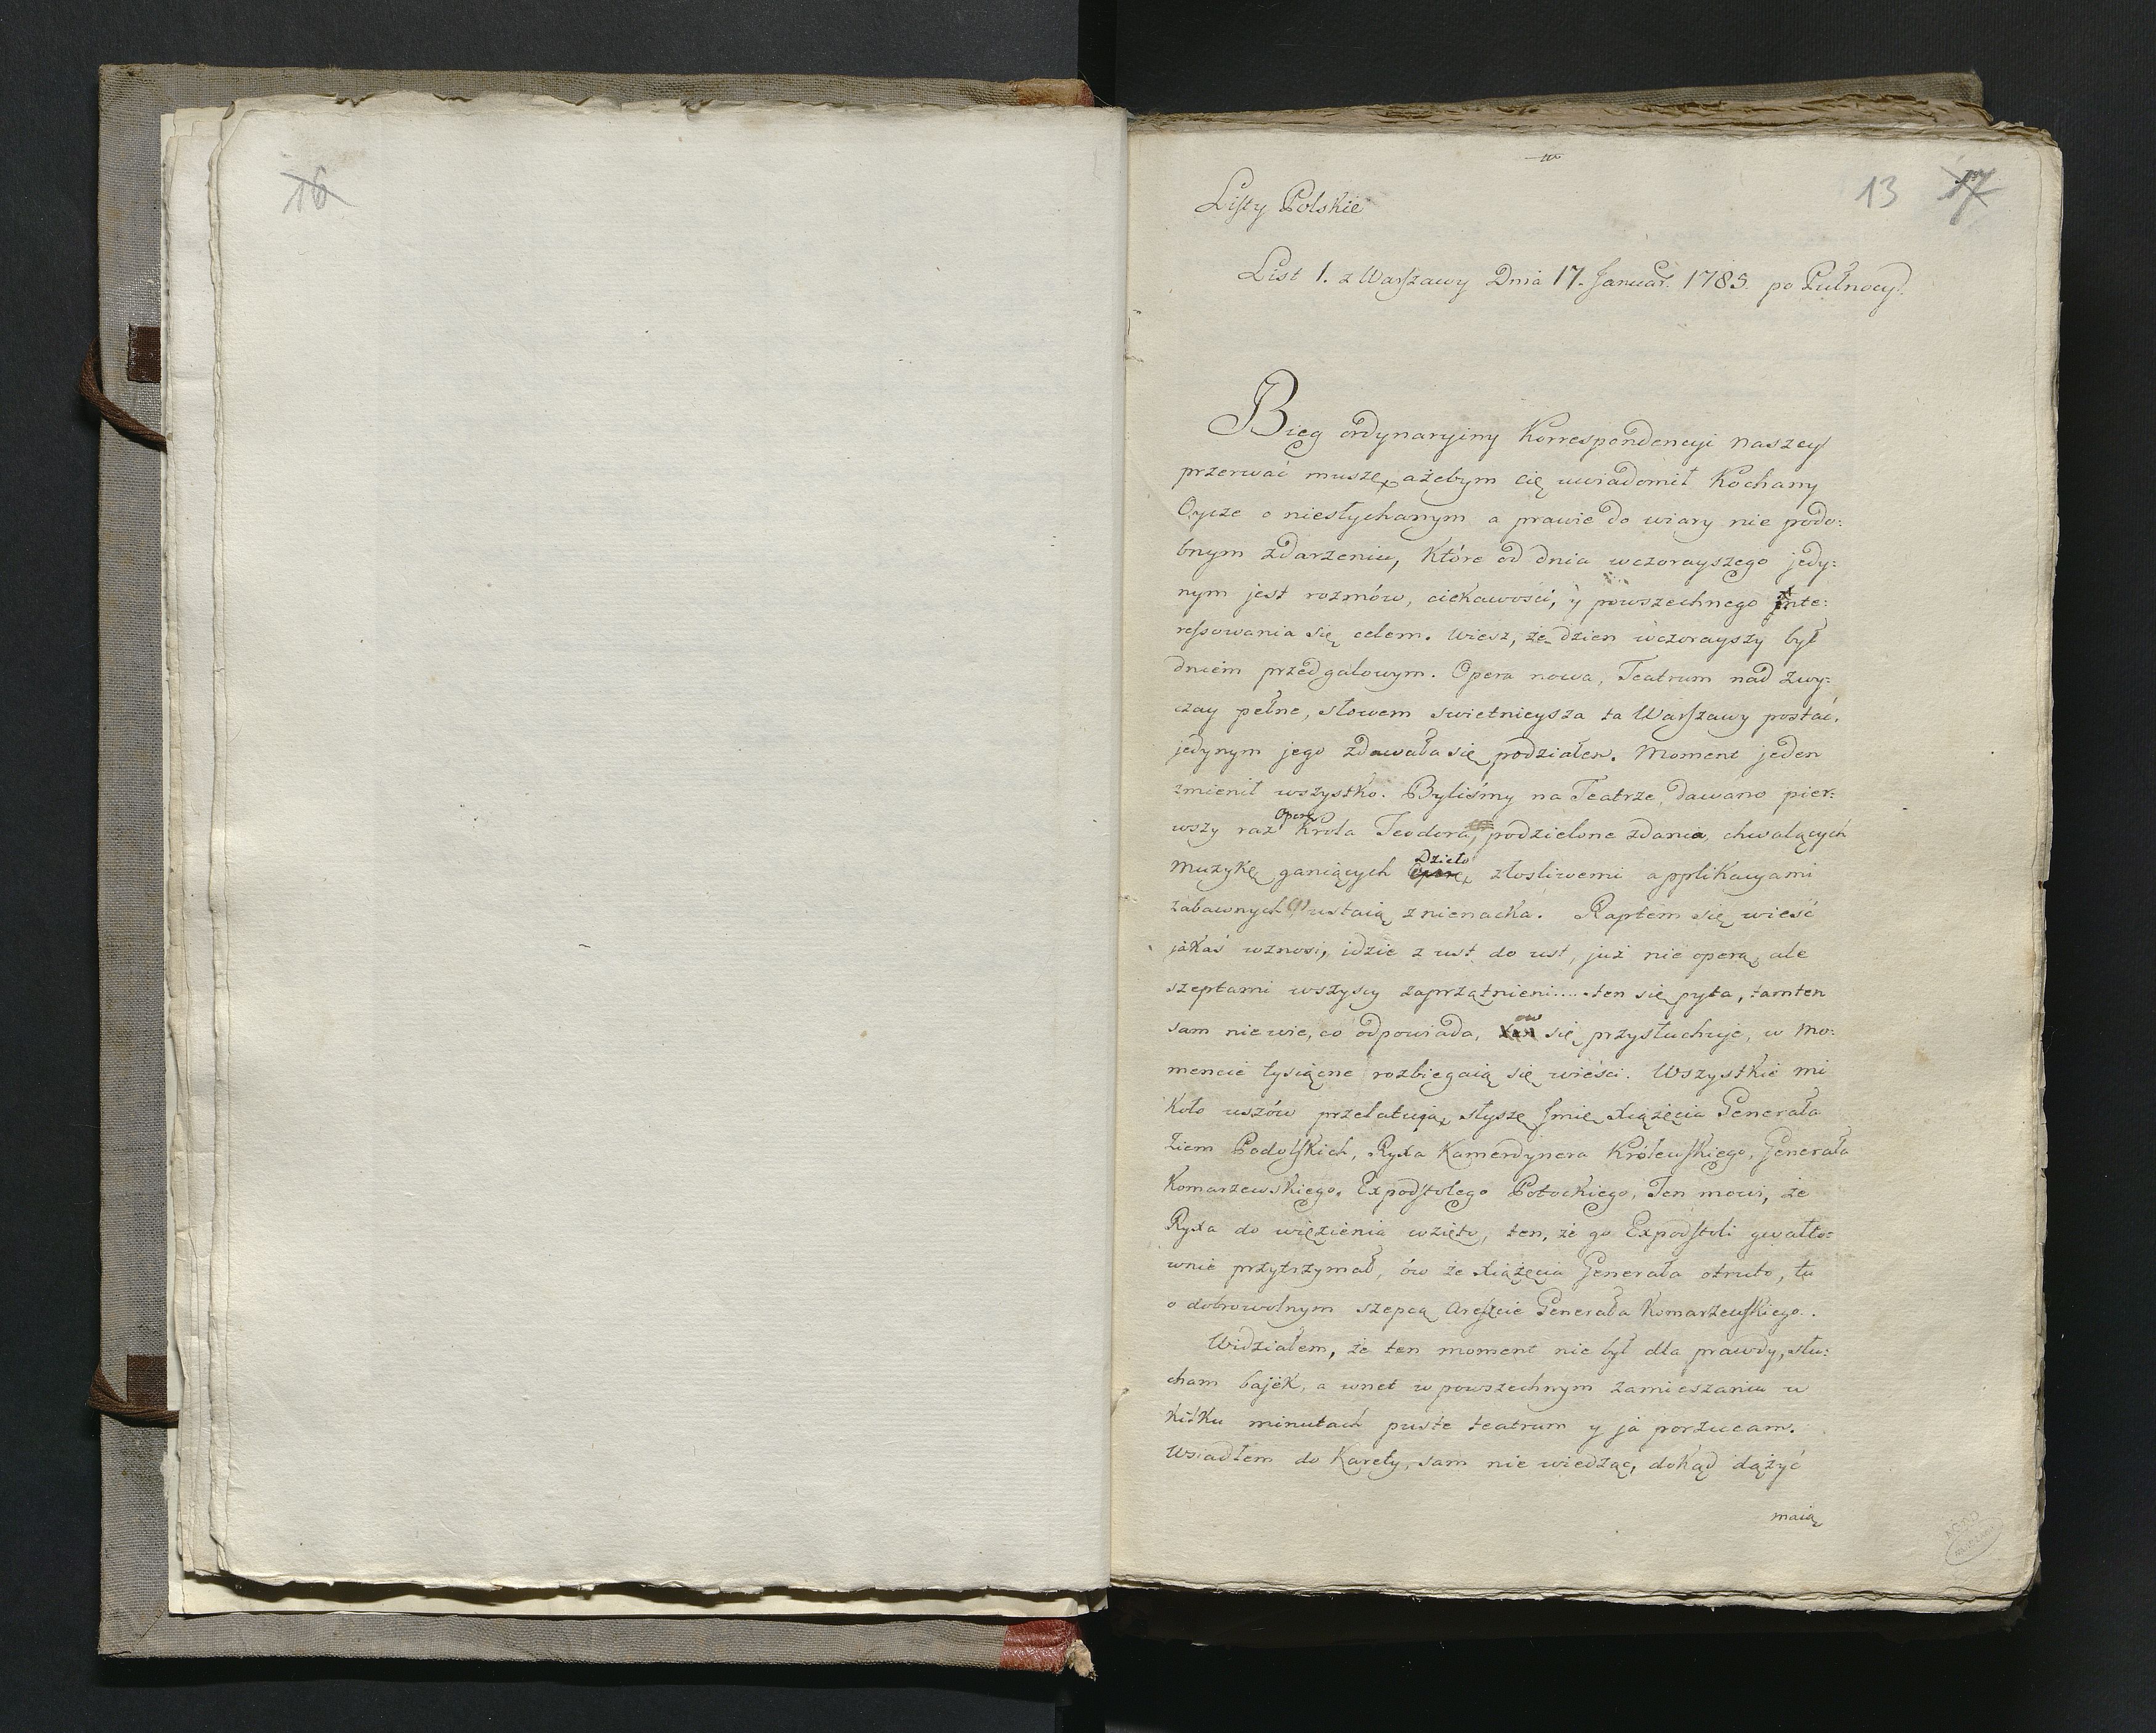 16
13 17
Listy Polskie
List 1. z Warszawy Dnia 17. Januar. 1785. po Pułnocy.
Bieg ordynaryiny Korrespondencyi naszey
przerwać muszę, ażebym cię uwiadomił Kochany
Oycze o niesłychanym a prawie do wiary nie podo:
bnym zdarzeniu, Które od dnia wczorayszego jedy:
nym jest rozmów, ciekawości, y powszechnego inte:
ressowania się celem. Wiesz, że dzien wczorayszy był
dniem przedgalowym. Opera nowa, Teatrum nad zwy:
czay pełne, słowem swietnieysza ta Warszawy postać,
jedynym jego zdawała się podziałem. Moment jeden
zmienił wszystko. Byliśmy na Teatrze, dawano pier:
wszy raz Operę Krola Teodora, podzielone zdania, chwalących
Muzykę ganiących Operę Dzieło złosliwemi applikacyami
zabawnych ustaią znienacka. Raptem się wieść
jakaś wznosi, idzie z ust do ust, już nie operą, ale
szeptami wszyscy zaprzątnieni.... ten się pyta, tamten
sam nie wie, co odpowiada, ow się przysłuchuje, w Mo:
mencie tysiączne rozbiegaią się wieści. Wszystkie mi
Koło uszów przelatują, słyszę Jmię Xiążęcia Generała
Ziem Podolskich, Ryxa Kamerdynera Królewskiego, Generała
Komarzewskiego. Expodstolego Potockiego, Ten mowi, że
Ryxa do więzienia wzięto, ten, że go Expodstoli gwałto:
wnie przytrzymał, ów że Xiążęcia Generała otruto, tu
o dobrowolnym szepcą Areszcie Generała Komarzewskiego.
Widziałem, że ten moment nie był dla prawdy, słu:
cham bajek, a wnet w powszechnym zamieszaniu w
Kilku minutach puste teatrum y ja porzucam.
Wsiadłem do Karety, sam nie wiedząc, dokąd dążyć
maią